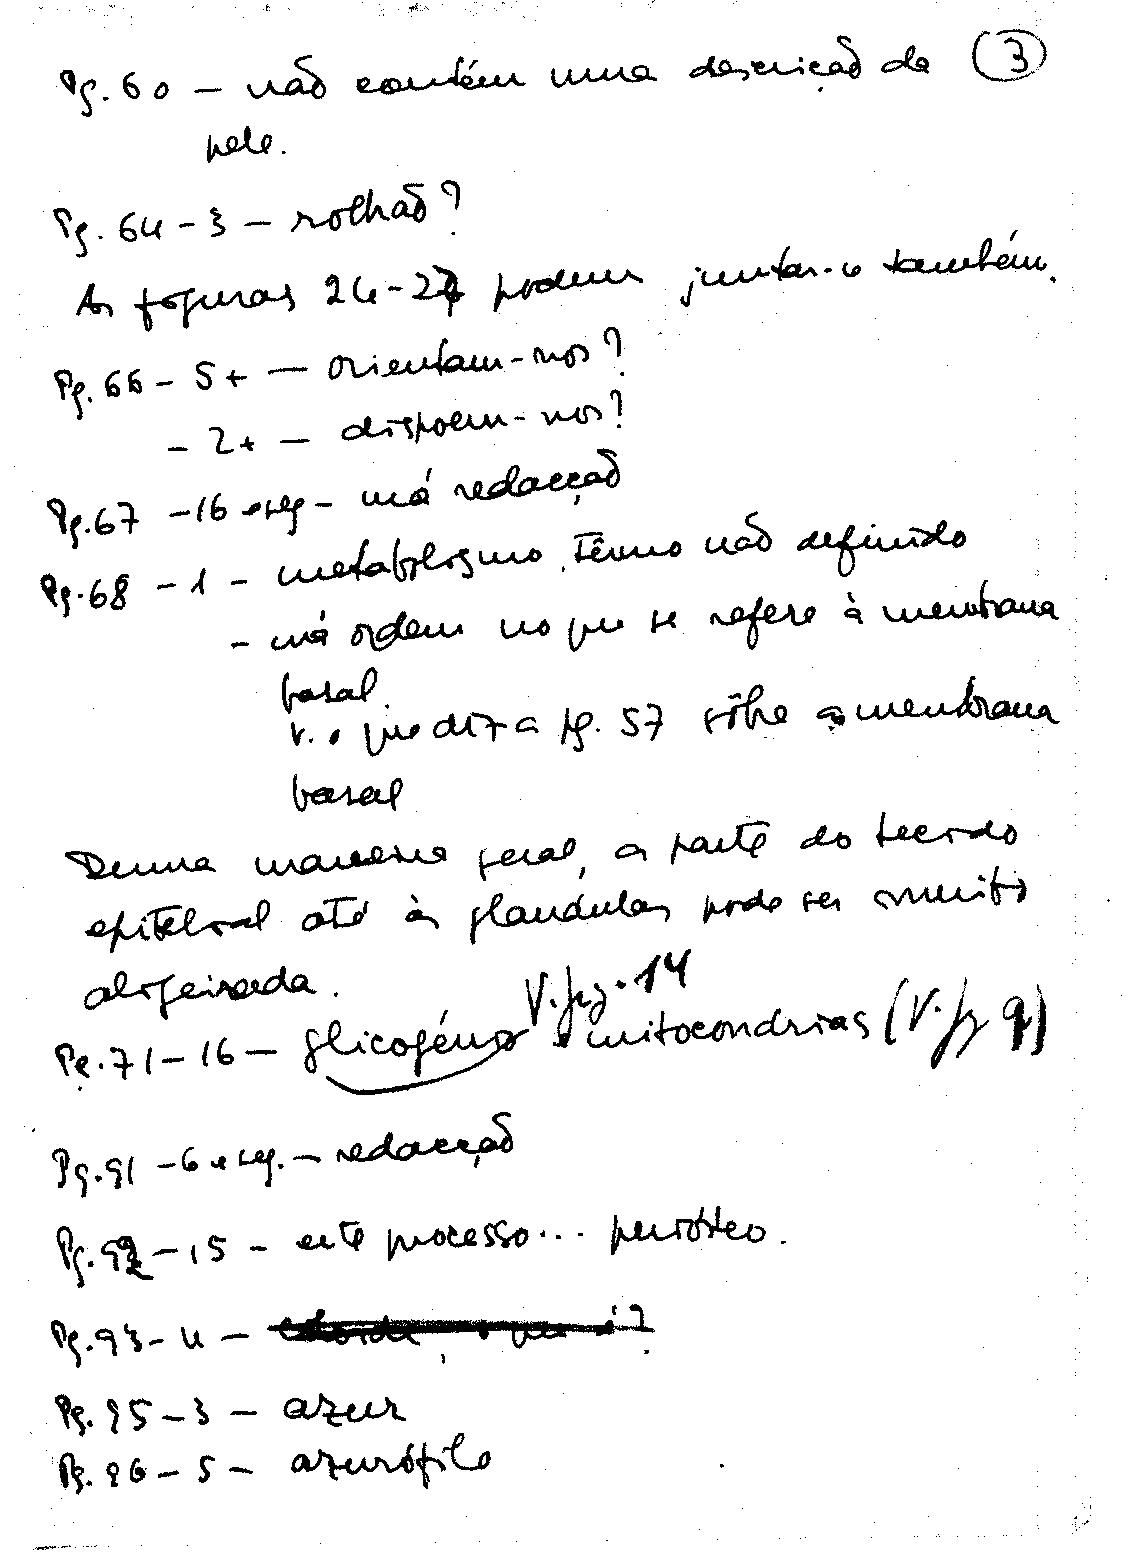 Pg. 60 — não contém uma descrição da ③
pele.
Pg. 64 - 3 — rolhão?
As figuras 26-27 podem juntar-se também.
Pg. 66 - 5+ — orientam-nos?
- 2+ — dispoem-nos?
Pg. 67 - 16 e seg - má redacção
Pg. 68 - 1 - metabolismo, têrmo não definido
- má ordem no que se refere à membrana
basal.
V. o que diz a pg. 57 sôbre a membrana
basal
Duma maneira geral, a parte do tecido
epitelial até às glandulas pode ser muito
aligeirada.
V. pg. 14
Pg. 71 - 16 — glicogénio e mitocondrias (V. pg 9)
Pg. 91 - 6 e seg. — redacção
Pg. 92 - 15 - este processo... perióteo.
Pg. 93 - 4 -
Pg. 95 - 3 - azur
Pg. 96 - 5 - azurófilo